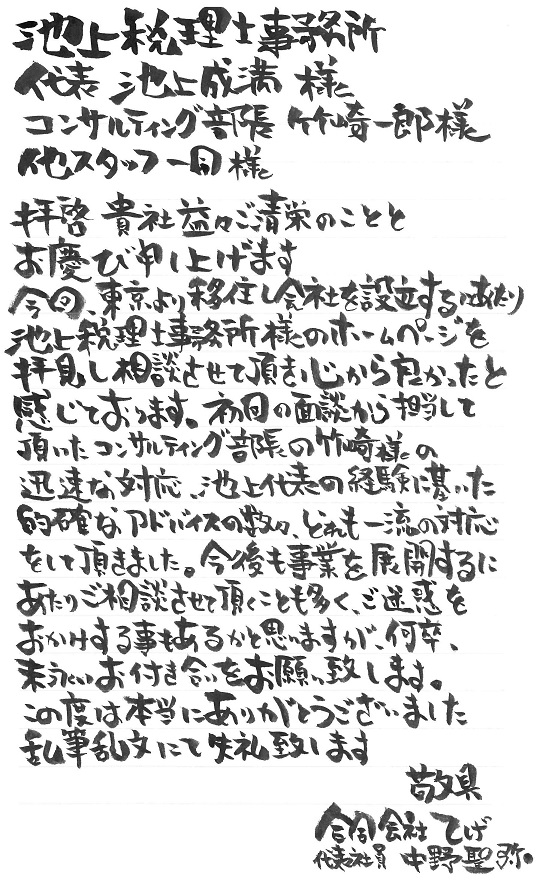 池上税理士事務所
代表 池上成満 様
コンサルティング部長 竹崎一郎様
他スタッフ一同 様
拝啓 貴社益々ご清栄のことと
お慶び申し上げます
今回、東京より移住し会社を設立するにあたり
池上税理士事務所様のホームページを
拝見し相談させて頂き心から良かったと
感じております。初回の面談から担当して
頂いたコンサルティング部長の竹崎様の
迅速な対応、池上代表の経験に基いた
的確なアドバイスの数々、どれも一流の対応
をして頂きました。今後も事業を展開するに
あたりご相談させて頂くことも多く、ご迷惑を
おかけする事もあるかと思いますが、何卒、
末永いお付き合いをお願い致します。
この度は本当にありがとうございました
乱筆乱文にて失礼致します
敬具
合同会社 てげ
代表社員 中野聖弥。